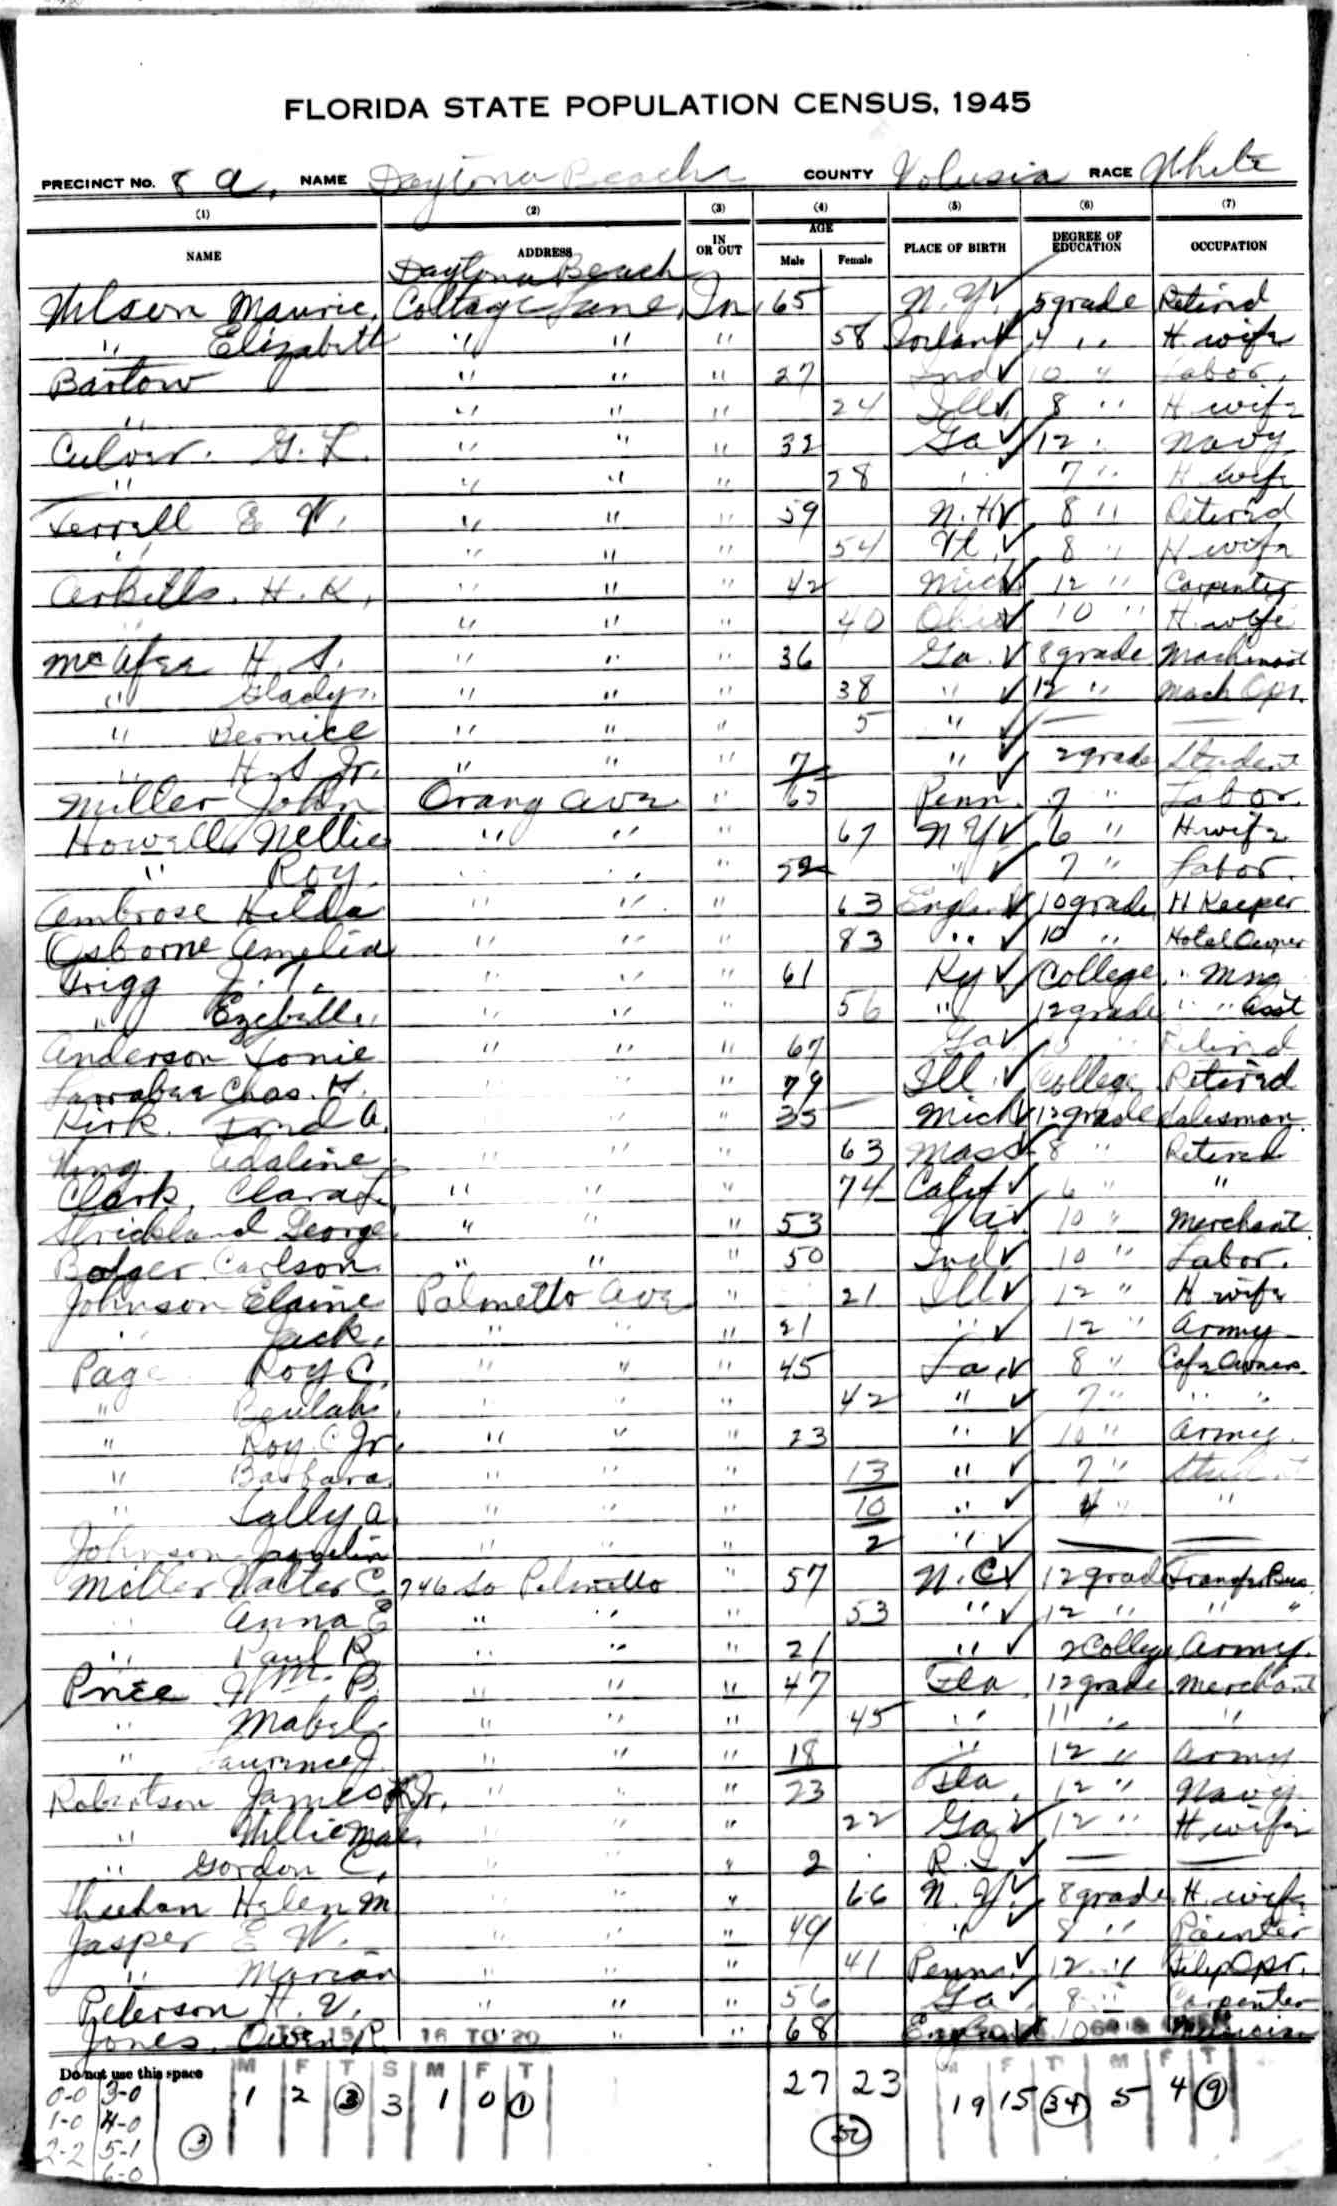 FLORIDA STATE POPULATION CENSUS, 1945
PRECINCT No. 8 a. NAME Daytona Beach COUNTY Volusia RACE White
(1) (2) (3) (4) (5) (6) (7)
NAME ADDRESS IN OR OUT AGE Male Female PLACE OF BIRTH DEGREE OF EDUCATION OCCUPATION
Daytona Beach
Wilson Mauric. Cottage Lane. In 65 N.Y. 5 grade Retird
" Elizabeth " " " 58 4 " H wife
Bartow " " " 27 Ind 10 " Labor.
" " " " 24 Ill. 8 " H. wife
Culver. G. L. " " " 32 Ga 12 " Navy
" " " " 28 " 7 " H wife
Terrell E V. " " " 59 N.H 8 " Retired
" " " " 54 Vt. 8 " H wife
H. K. " " " 42 Mich 12 " Carpenter
" " " " 40 Ohio 10 " H. wife
McAfee H. S. " " " 36 Ga. 8 grade Machinist
" Gladys. " " " 38 " 12 " Mach Opr.
" Bernice " " " 5 " — —
" H. S. Jr. " " " 7 " 2 grade Student
Miller John Orang Ave " 65 Penn. 7 " Labor.
Howell Nellie " " " 67 N Y 6 " H wife
" Roy. " " " 52 " 7 " Labor.
Ambrose Hilda " " " 63 England 10 grade H Keeper
Osborne Amelia " " " 83 " 10 " Hotel Owner
Trigg J. T. " " " 61 Ky College " Mng
" Ezebell. " " " 56 " 12 grade " " Asst
Anderson Lonie " " " 67 Ga Retird
Larrabee Chas. H. " " " 79 Ill. College Retired
Kirk. Fred A. " 35 Mich 12 grade Salesman.
King, Adaline " 63 Mass 8 " Retired
Clark, Clara L. " " " 74 Calif 6 " "
Strickland George " " " 53 10 " Merchant
Bodger Carlson. " " " 50 Ind 10 " Labor.
Johnson Elaine Palmetto Ave " 21 Ill 12 " H wife
" Jack. " " " 21 " 12 " Army
Page Roy C. " " " 45 8 " Cafe Owners
" Beulah. " " " 42 " 7 " " "
" Roy. C Jr. " " " 23 " 10 " Army.
" Barbara. " " " 13 " 7 " Student
" Sally A. " " " 10 " 4 " "
Johnson " " " 2 " — —
Miller Walter C. 746 So Palmetto " 57 N. C 12 grade Transfer Bus.
" Anna E " " " 53 " 12 " " "
" Paul R. " " " 21 " 2 College Army.
Price Wm. B. " " " 47 Fla. 12 grade Merchant
" Mabel. " " " 45 " 11 " "
" Laurence J. " " " 18 " 12 " Army
Robertson James R Jr. " " " 23 Fla. 12 " Navy
" Willie Mae. " " " 22 Ga 12 " H. wife
" Gordon C. " " " 2 R. I — —
Sheehan Helen M " " " 66 N. Y. 8 grade H. wife
Jasper E W. " " " 49 " 8 " Painter
" Marian " " " 41 Penn. 12 " Opr.
Peterson H. V. " " " 56 Ga 8 " Carpenter
Jones. Owen R. 16 TO 20 " " 68 England 10 Musician
Do not use this space M F T S M F T 27 23 M F T M F T
0-0 3-0 1 2 3 3 1 0 1 19 15 34 5 4 9
1-0 4-0
2-2 5-1 3 50
6-0